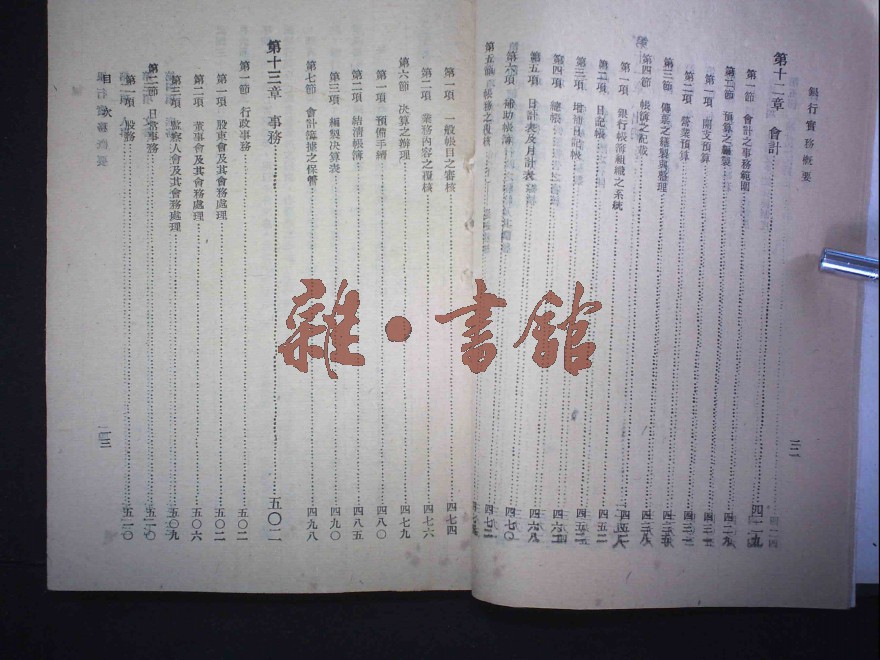 銀行實務概要
第十二章 會計
第一節 會計之事務範圍
第二節 預算之編製 四二九
第一項 開支預算
第二項 營業預算 四三一
第三節 傳票之繕製與整理
第四節 帳簿之記載 四三八
第一項 銀行帳簿組織之系統
第二項 日記帳 四五二
第三項 增補日記帳
第四項 總帳
第五項 日計表及月計表 四六八
第六項 補助帳簿 四七〇
第五節 帳務之覆核
第一項 一般帳目之審核 四七四
第二項 業務內容之覆核 四七六
第六節 決算之辦理 四七九
第一項 預備手續 四八〇
第二項 結清帳簿 四八五
第三項 編製決算表 四九〇
第七節 會計簿據之保管 四九八
第十三章 事務 五〇二
第一節 行政事務 五〇二
第一項 股東會及其會務處理 五〇二
第二項 董事會及其會務處理 五〇六
第三項 監察人會及其會務處理 五〇九
第二節 日常事務 五一〇
第一項 股務 五一〇
目次
雜·書館